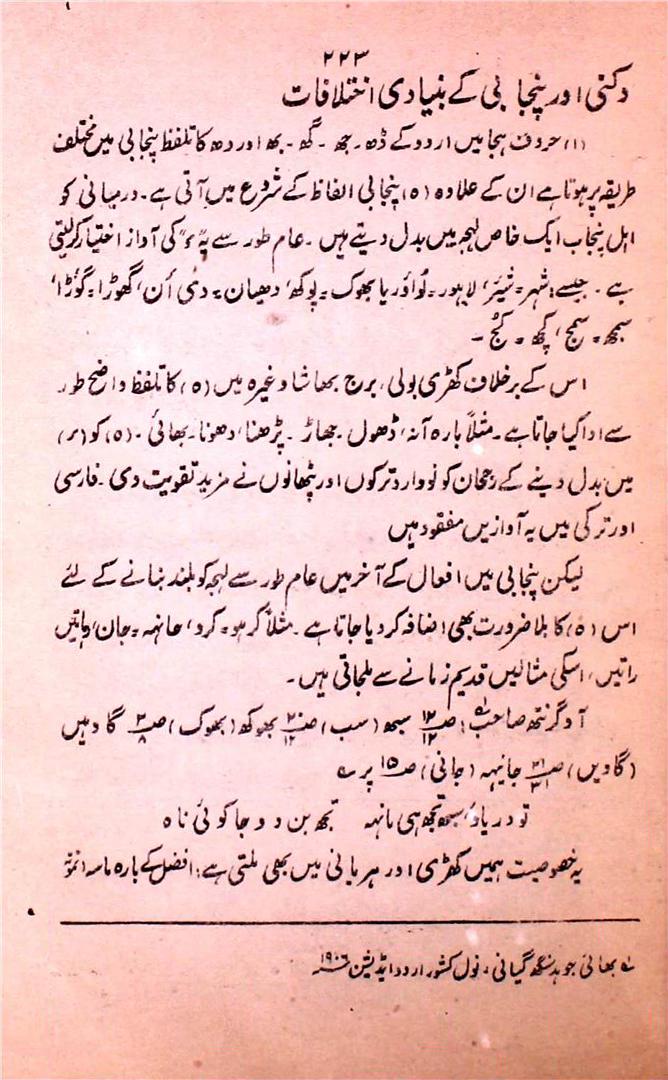 ۲۲۳
دکنی اور پنجابی کے بنیادی اختلافات
(۱) حروف ہجا میں اردو کے ڈھ۔ جھ۔ گھ۔ بھ اور دھ کا تلفظ پنجابی میں مختلف
طریقہ پر ہوتا ہے ان کے علاوہ (ہ) پنجابی الفاظ کے شروع میں آتی ہے۔ درمیانی کو
اہل پنجاب ایک خاص لہجہ میں بدل دیتے ہیں۔ عام طور سے یہ "ء" کی آواز اختیار کرلیتی
ہے۔ جیسے: شہر = شیئر، لاہور = لؤور یا بھوک = پوکھ، دھیان = دئی اُن، گھوڑا = گؤڑا،
سمجھ = سمج، کچھ = کُج۔
اس کے برخلاف کھڑی بولی، برج بھاشا وغیرہ میں (ہ) کا تلفظ واضح طور
سے ادا کیا جاتا ہے۔ مثلاً بارہ آنہ، ڈھول۔ جھاڑ۔ پڑھنا، دھونا۔ بھائی۔ (ہ) کو (ء)
میں بدل دینے کے رجحان کو نووارد ترکوں اور پٹھانوں نے مزید تقویت دی۔ فارسی
اور ترکی میں یہ آوازیں مفقود ہیں
لیکن پنجابی میں افعال کے آخر میں عام طور سے لہجہ کو بلند بنانے کے لئے
اس (ہ) کا بلا ضرورت بھی اضافہ کردیا جاتا ہے۔ مثلاً کرہو = کرو، جانہہ = جان،
راتیں، اسکی مثالیں قدیم زمانے سے ملجاتی ہیں۔
آد گرنتھ صاحب؎۱: ص۱۲/۱۲ سبھ (سب) ص۲۰/۱۲ بھوکھ (بھوک) ص۳/۸ گاوہیں
(گاویں) ص۲۱/۳۱ جانیہہ (جانی) ص۱۵ پر ہے
تو دریاؤ سبھ تجھ ہی مانہہ تجھ بن دوجا کوئی ناہ
یہ خصوصیت ہمیں کھڑی اور ہریانی میں بھی ملتی ہے: افضل کے بارہ ماسہ
؎۱ بھائی جوہد سنگھ گیانی، نول کشور اردو ایڈیشن ۱۹۰۶ء